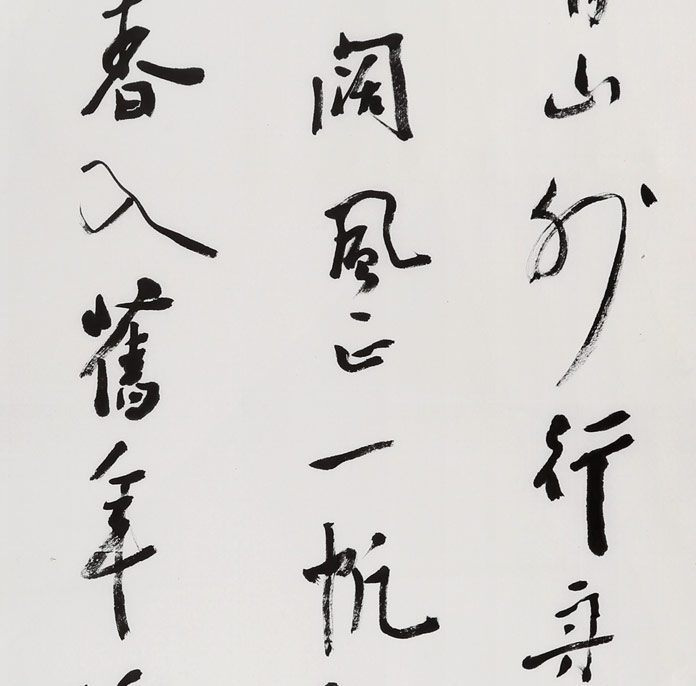 青山外行舟
闊風正一帆
春入舊年